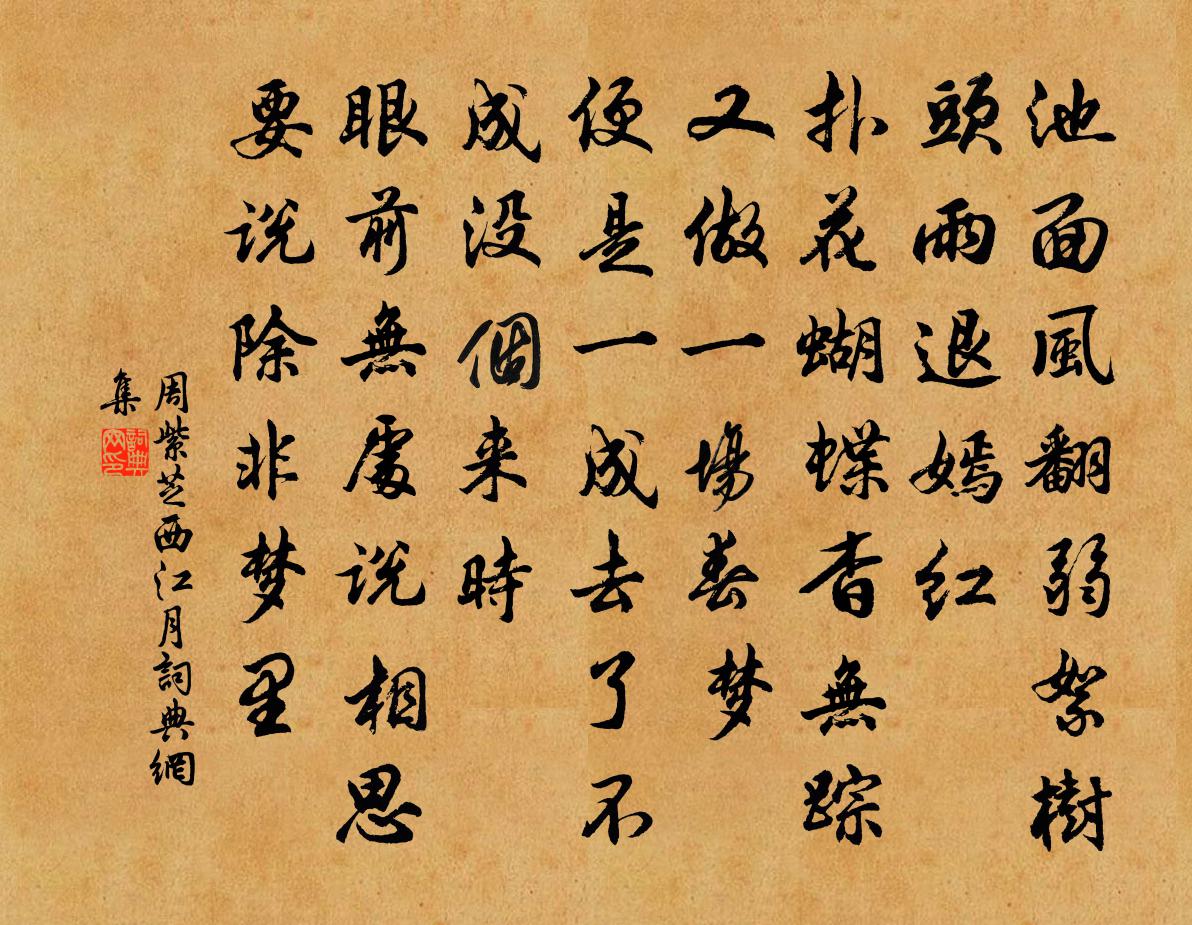 池面風翻弱絮樹
頭雨退嫣红
扑花蝴蝶杳無踪
又做一場春梦
便是一成去了不
成没個来時
眼前無處说相思
要说除非梦里
周紫芝西江月詞典網
集
詞典網印